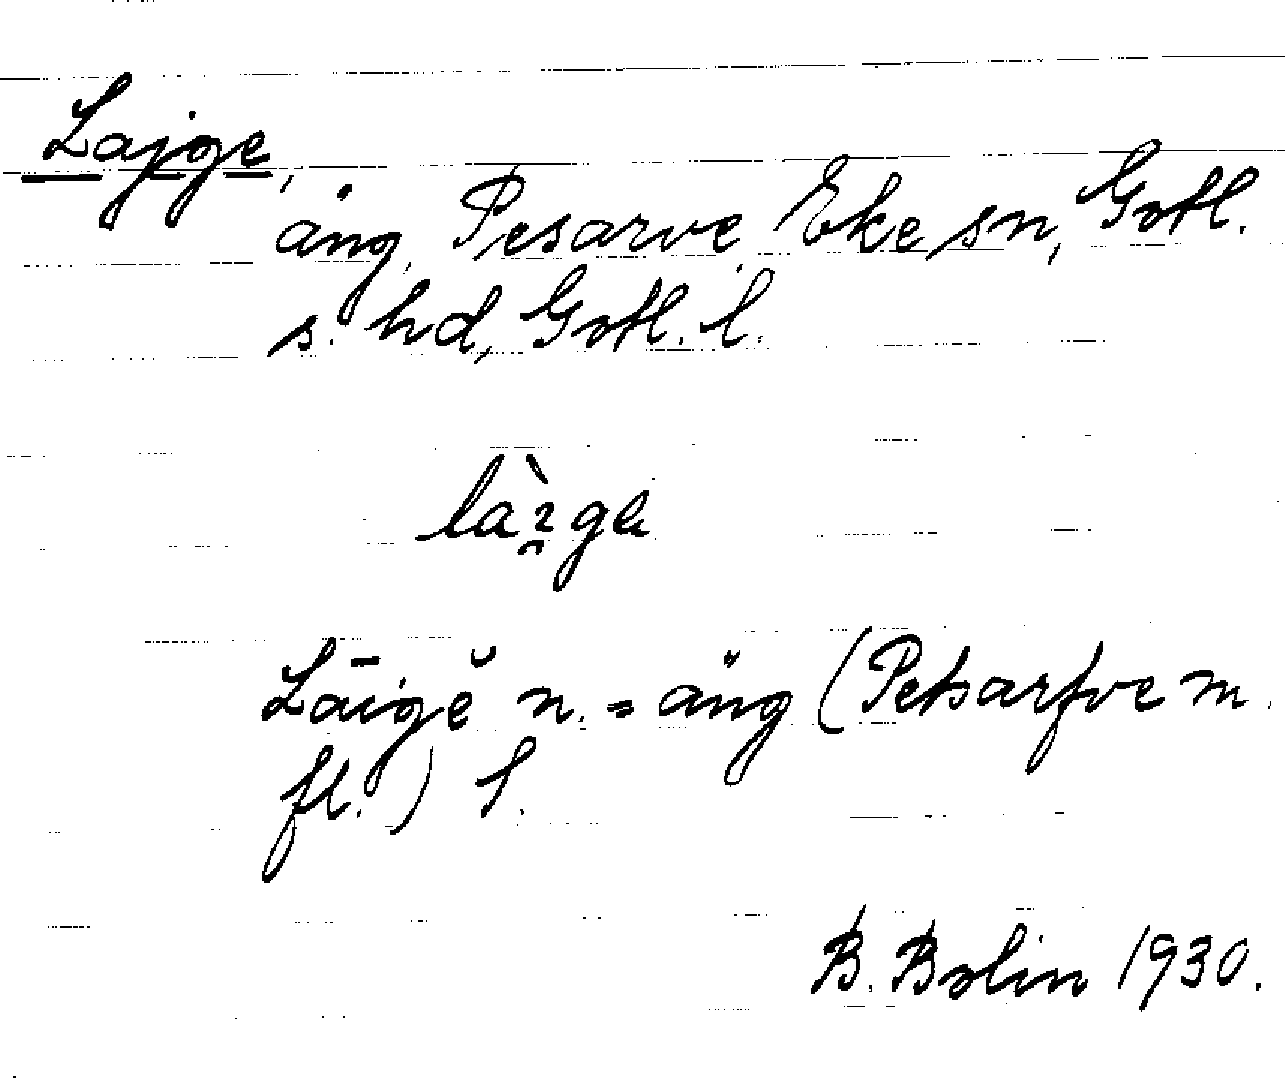 Lajge,
äng, Pesarve, Eke sn, Gotl.
s. hd, Gotl. l.
Lāigĕ n. = äng (Petsarfve m.
fl.) S.
B. Bolin 1930.